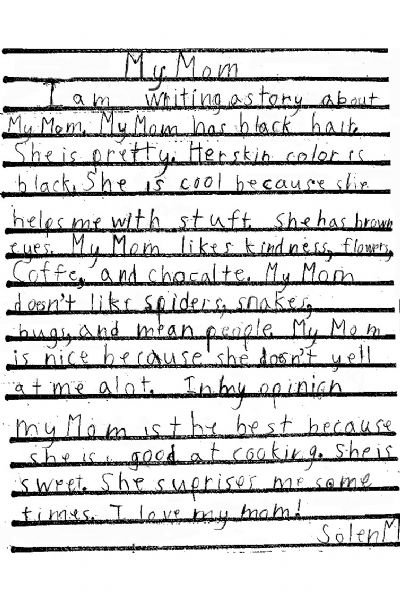 My Mom
I am writing a story about
My Mom. My Mom has black hair.
She is pretty. Her skin color is
black. She is cool because she
helps me with stuff. She has brown
eyes. My Mom likes kindness, flowers,
Coffe, and chocalte. My Mom
doesn't like spiders, snakes,
bugs, and mean people. My Mom
is nice because she doesn't yell
at me alot. In my opinion
my Mom is the best because
she is good at cooking. She is
sweet. She suprises me some
times. I love my mom!
Solen M